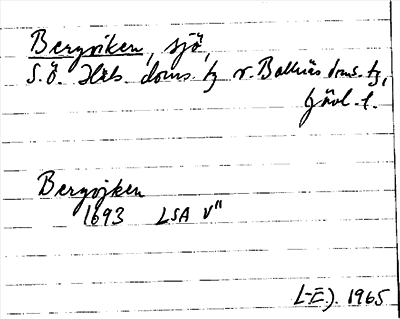 Bergviken, sjö,
S.Ö. Häls. doms. tg v. Bollnäs doms. tg,
Gävl. l.
Bergvjken
1693 LSA V"
L-E.J. 1965